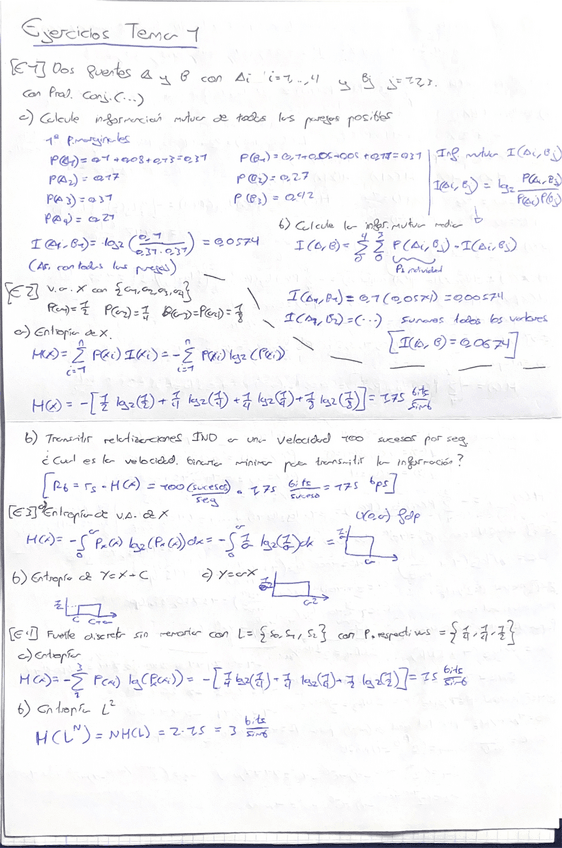 Ejercicios Tema 1
[E1] Dos fuentes A y B con Ai i=1,..,4 y Bj j=1,2,3.
con Prob. Conj. (...)
a) Calcule información mutua de todos las parejas posibles
1º P. marginales
P(A1) = 0.1 + 0.08 + 0.13 = 0.31
P(A2) = 0.17
P(A3) = 0.31
P(A4) = 0.21
I(A1, B1) = log2 (0.1 / 0.31·0.31) = 0.0574
(As. con todas las parejas)
P(B1) = 0.1+0.05+0.05+0.11=0.31
P(B2) = 0.27
P(B3) = 0.42
Inf mutua I(Ai, Bj)
I(Ai, Bj) = log2 P(Ai, Bj) / P(Ai)P(Bj)
b) Calcule la infor. mutua media
I(A, B) = Σ Σ P(Ai, Bj) · I(Ai, Bj)
I(A1, B1) = 0.1 (0.0574) = 0.00574
I(A1, B2) = (...) sumamos todos los valores
[I(A, B) = 0.0674]
[E2] v.a. X con {a1, a2, a3, a4}
P(a1) = 1/2 P(a2) = 1/4 P(a3) = P(a4) = 1/8
a) Entropia de X.
H(X) = Σ P(xi) I(xi) = - Σ P(xi) log2 (P(xi))
H(X) = -[1/2 log2(1/2) + 1/4 log2(1/4) + 1/4 log2(1/4) + 1/8 log2(1/8)] = 1.75 bits/simb
b) Transmitir realizaciones IND a una velocidad 100 sucesos por seg
¿Cual es la velocidad. binaria minima para transmitir la información?
[Rb = rs · H(X) = 100 (sucesos)/seg · 1.75 bits/suceso = 175 bps]
[E3] a) Entropia de v.a. de X
H(X) = -∫ Px(x) log2 (Px(x)) dx = -∫ 1/a log2(1/a) dx =
U(0,a) fdp
b) Entropia de Y=X+C c) Y=aX
[E4] Fuente discreta sin memoria con L = {S0, S1, S2} con P. respectivas = {1/4, 1/4, 1/2}
a) Entropia
H(X) = -Σ P(xi) log(P(xi)) = -[1/4 log2(1/4) + 1/4 log2(1/4) + 1/2 log2(1/2)] = 1.5 bits/simb
b) Entropia L²
H(L^N) = NH(L) = 2·1.5 = 3 bits/simb